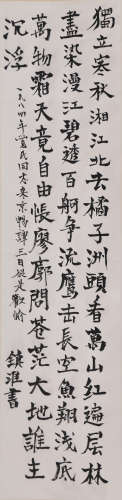 獨立寒秋湘江北去橘子洲頭看萬山紅遍层林
盡染漫江碧透百舸争流鹰击長空魚翔浅底
萬物霜天竟自由悵廖廓問苍茫大地誰主
沉浮
一九八四年
鎮淮書